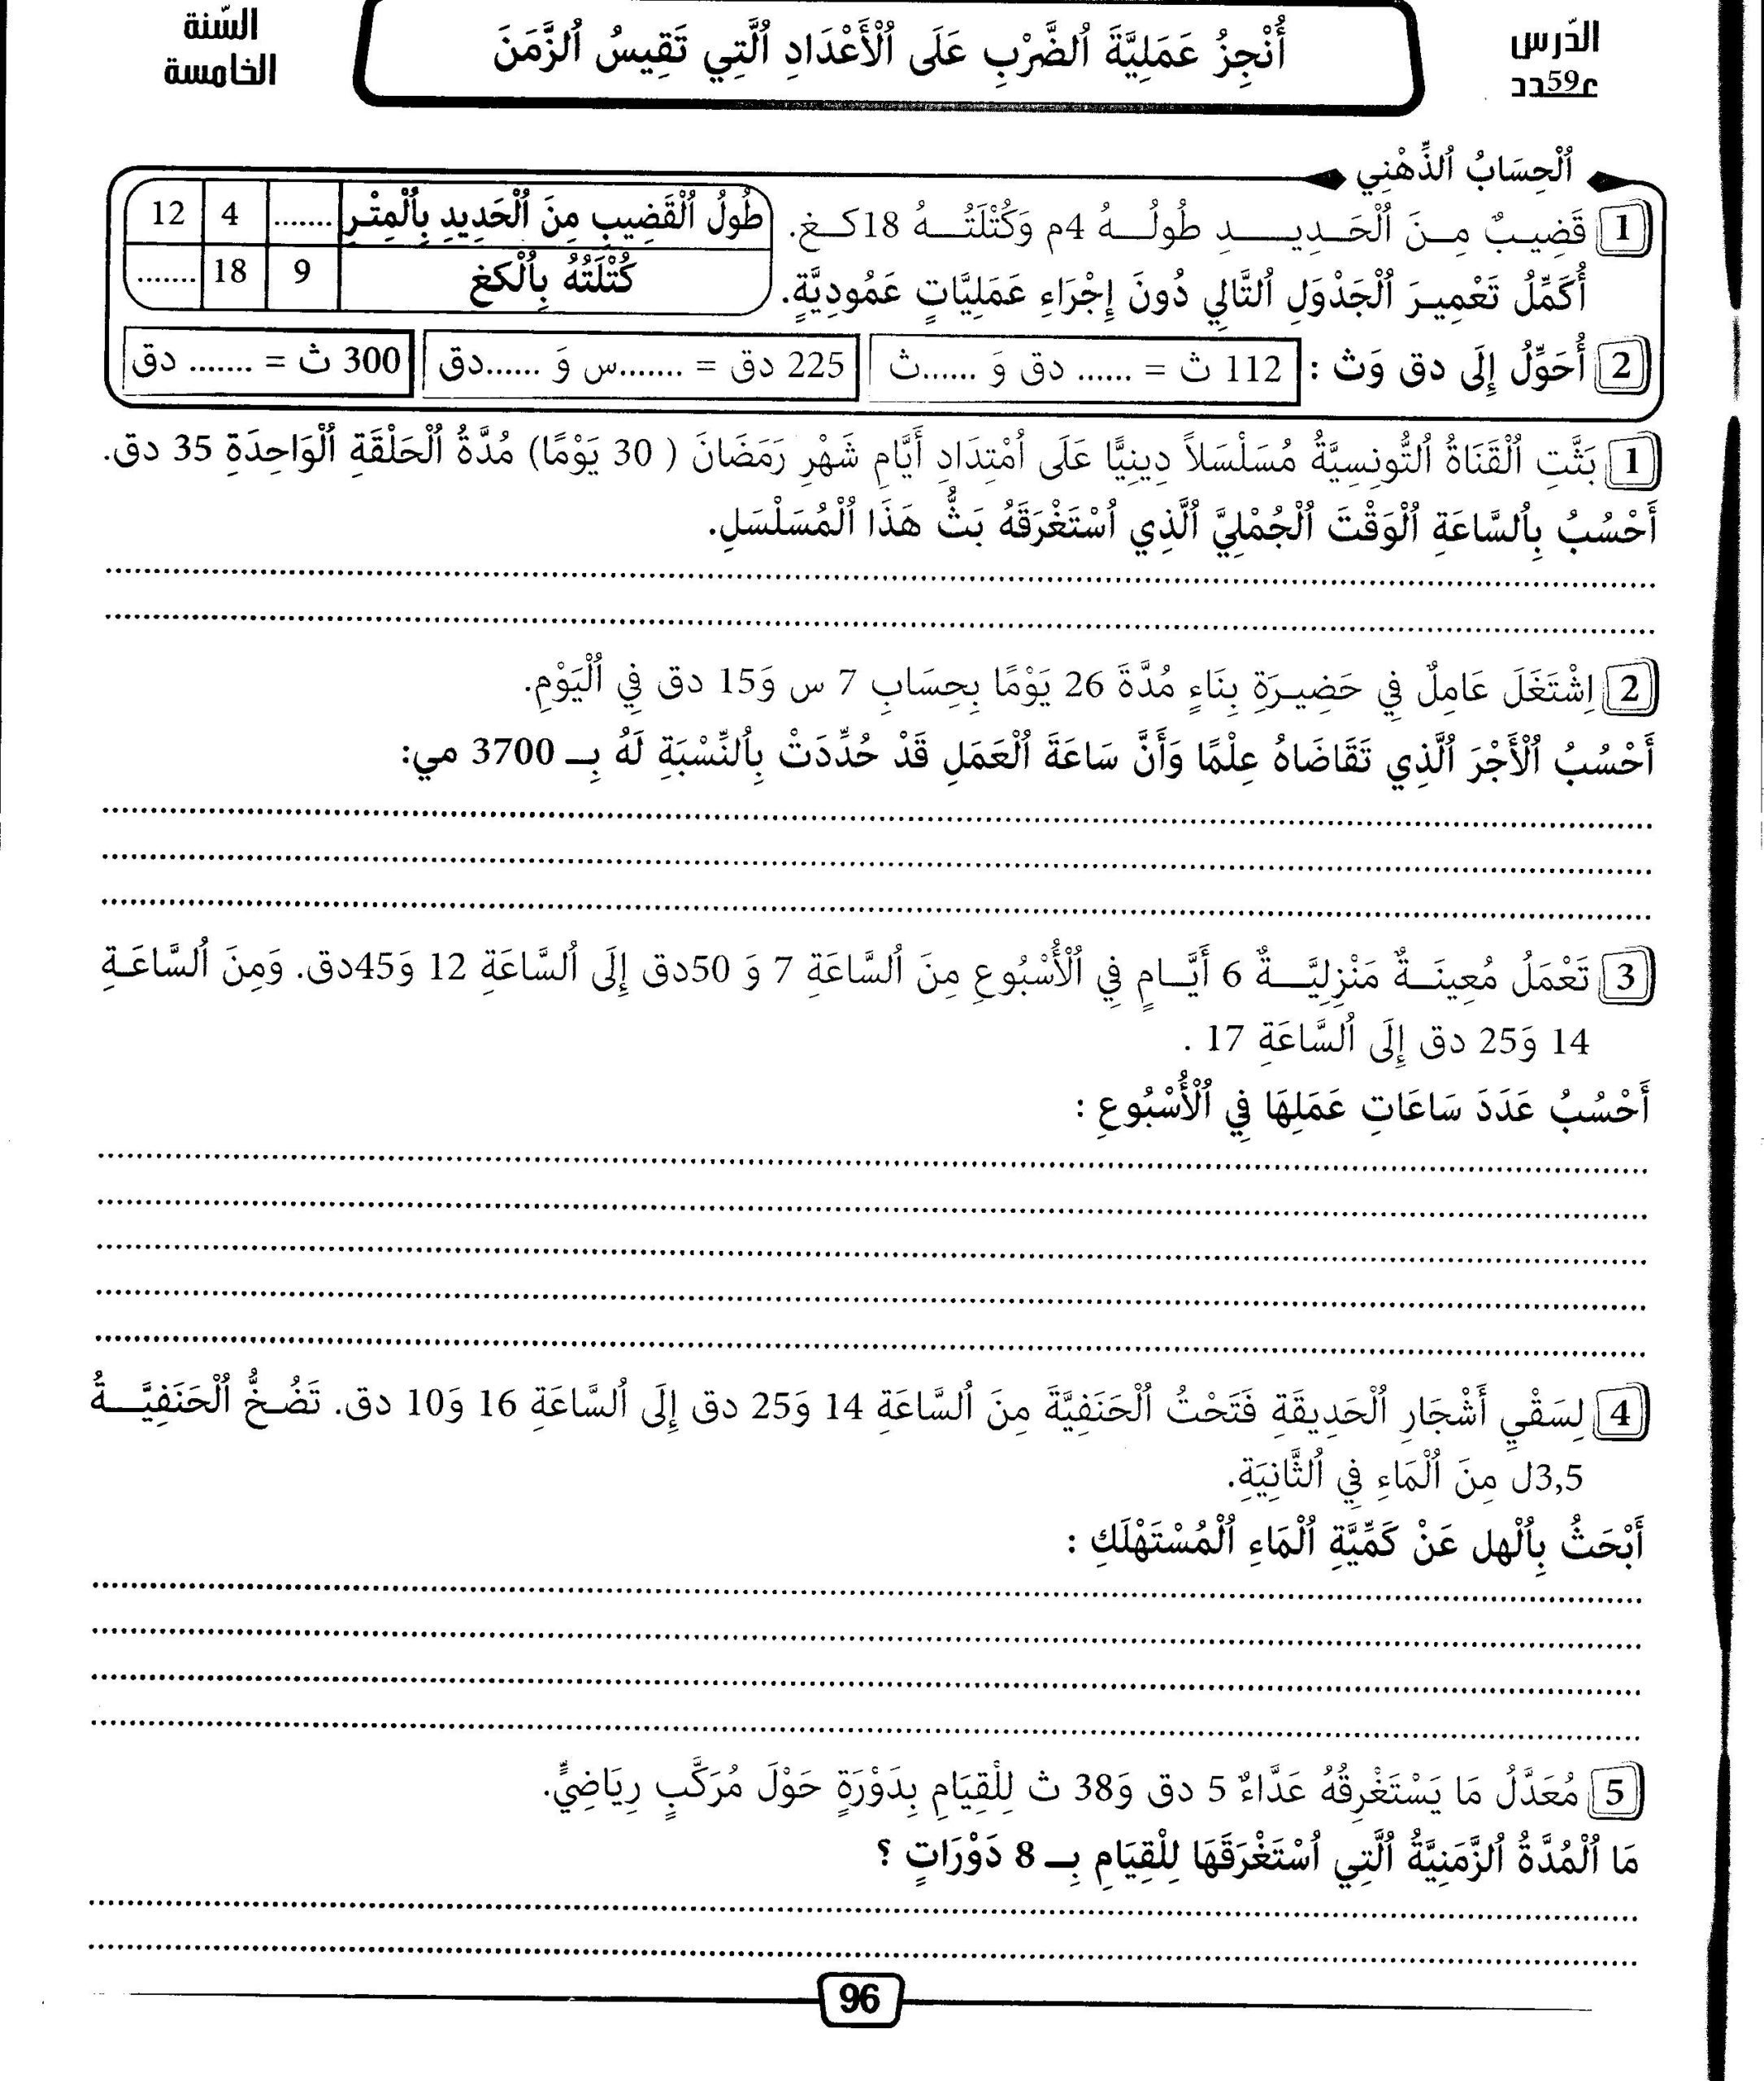 الدّرس
ع59دد
أُنْجِزُ عَمَلِيَّةَ ٱلضَّرْبِ عَلَى ٱلْأَعْدَادِ ٱلَّتِي تَقِيسُ ٱلزَّمَنَ
السّنة
الخامسة
ٱلْحِسَابُ ٱلذِّهْنِي
1 قَضِيبٌ مِنَ ٱلْحَدِيدِ طُولُهُ 4م وَكُتْلَتُهُ 18كغ.
أُكَمِّلُ تَعْمِيرَ ٱلْجَدْوَلِ ٱلتَّالِي دُونَ إِجْرَاءِ عَمَلِيَّاتٍ عَمُودِيَّةٍ.
طُولُ ٱلْقَضِيبِ مِنَ ٱلْحَدِيدِ بِٱلْمِتْرِ ....... 4 12
كُتْلَتُهُ بِٱلْكغ 9 18 .......
2 أُحَوِّلُ إِلَى دق وَث : 112 ث = ...... دق وَ ......ث 225 دق = .......س وَ ......دق 300 ث = ....... دق
1 بَثَّتِ ٱلْقَنَاةُ ٱلتُّونِسِيَّةُ مُسَلْسَلاً دِينِيًّا عَلَى ٱمْتِدَادِ أَيَّامِ شَهْرِ رَمَضَانَ ( 30 يَوْمًا) مُدَّةُ ٱلْحَلْقَةِ ٱلْوَاحِدَةِ 35 دق.
أَحْسُبُ بِٱلسَّاعَةِ ٱلْوَقْتَ ٱلْجُمْلِيَّ ٱلَّذِي ٱسْتَغْرَقَهُ بَثُّ هَذَا ٱلْمُسَلْسَلِ.
2 اِشْتَغَلَ عَامِلٌ فِي حَضِيرَةِ بِنَاءٍ مُدَّةَ 26 يَوْمًا بِحِسَابِ 7 س وَ15 دق فِي ٱلْيَوْمِ.
أَحْسُبُ ٱلْأَجْرَ ٱلَّذِي تَقَاضَاهُ عِلْمًا وَأَنَّ سَاعَةَ ٱلْعَمَلِ قَدْ حُدِّدَتْ بِٱلنِّسْبَةِ لَهُ بِـ 3700 مي:
3 تَعْمَلُ مُعِينَةٌ مَنْزِلِيَّةٌ 6 أَيَّامٍ فِي ٱلْأُسْبُوعِ مِنَ ٱلسَّاعَةِ 7 وَ 50دق إِلَى ٱلسَّاعَةِ 12 وَ45دق. وَمِنَ ٱلسَّاعَةِ
14 وَ25 دق إِلَى ٱلسَّاعَةِ 17 .
أَحْسُبُ عَدَدَ سَاعَاتِ عَمَلِهَا فِي ٱلْأُسْبُوعِ :
4 لِسَقْيِ أَشْجَارِ ٱلْحَدِيقَةِ فَتَحْتُ ٱلْحَنَفِيَّةَ مِنَ ٱلسَّاعَةِ 14 وَ25 دق إِلَى ٱلسَّاعَةِ 16 وَ10 دق. تَضُخُّ ٱلْحَنَفِيَّةُ
3,5ل مِنَ ٱلْمَاءِ فِي ٱلثَّانِيَةِ.
أَبْحَثُ بِٱلْهل عَنْ كَمِّيَّةِ ٱلْمَاءِ ٱلْمُسْتَهْلَكِ :
5 مُعَدَّلُ مَا يَسْتَغْرِقُهُ عَدَّاءٌ 5 دق وَ38 ث لِلْقِيَامِ بِدَوْرَةٍ حَوْلَ مُرَكَّبٍ رِيَاضِيٍّ.
مَا ٱلْمُدَّةُ ٱلزَّمَنِيَّةُ ٱلَّتِي ٱسْتَغْرَقَهَا لِلْقِيَامِ بِـ 8 دَوْرَاتٍ ؟
96